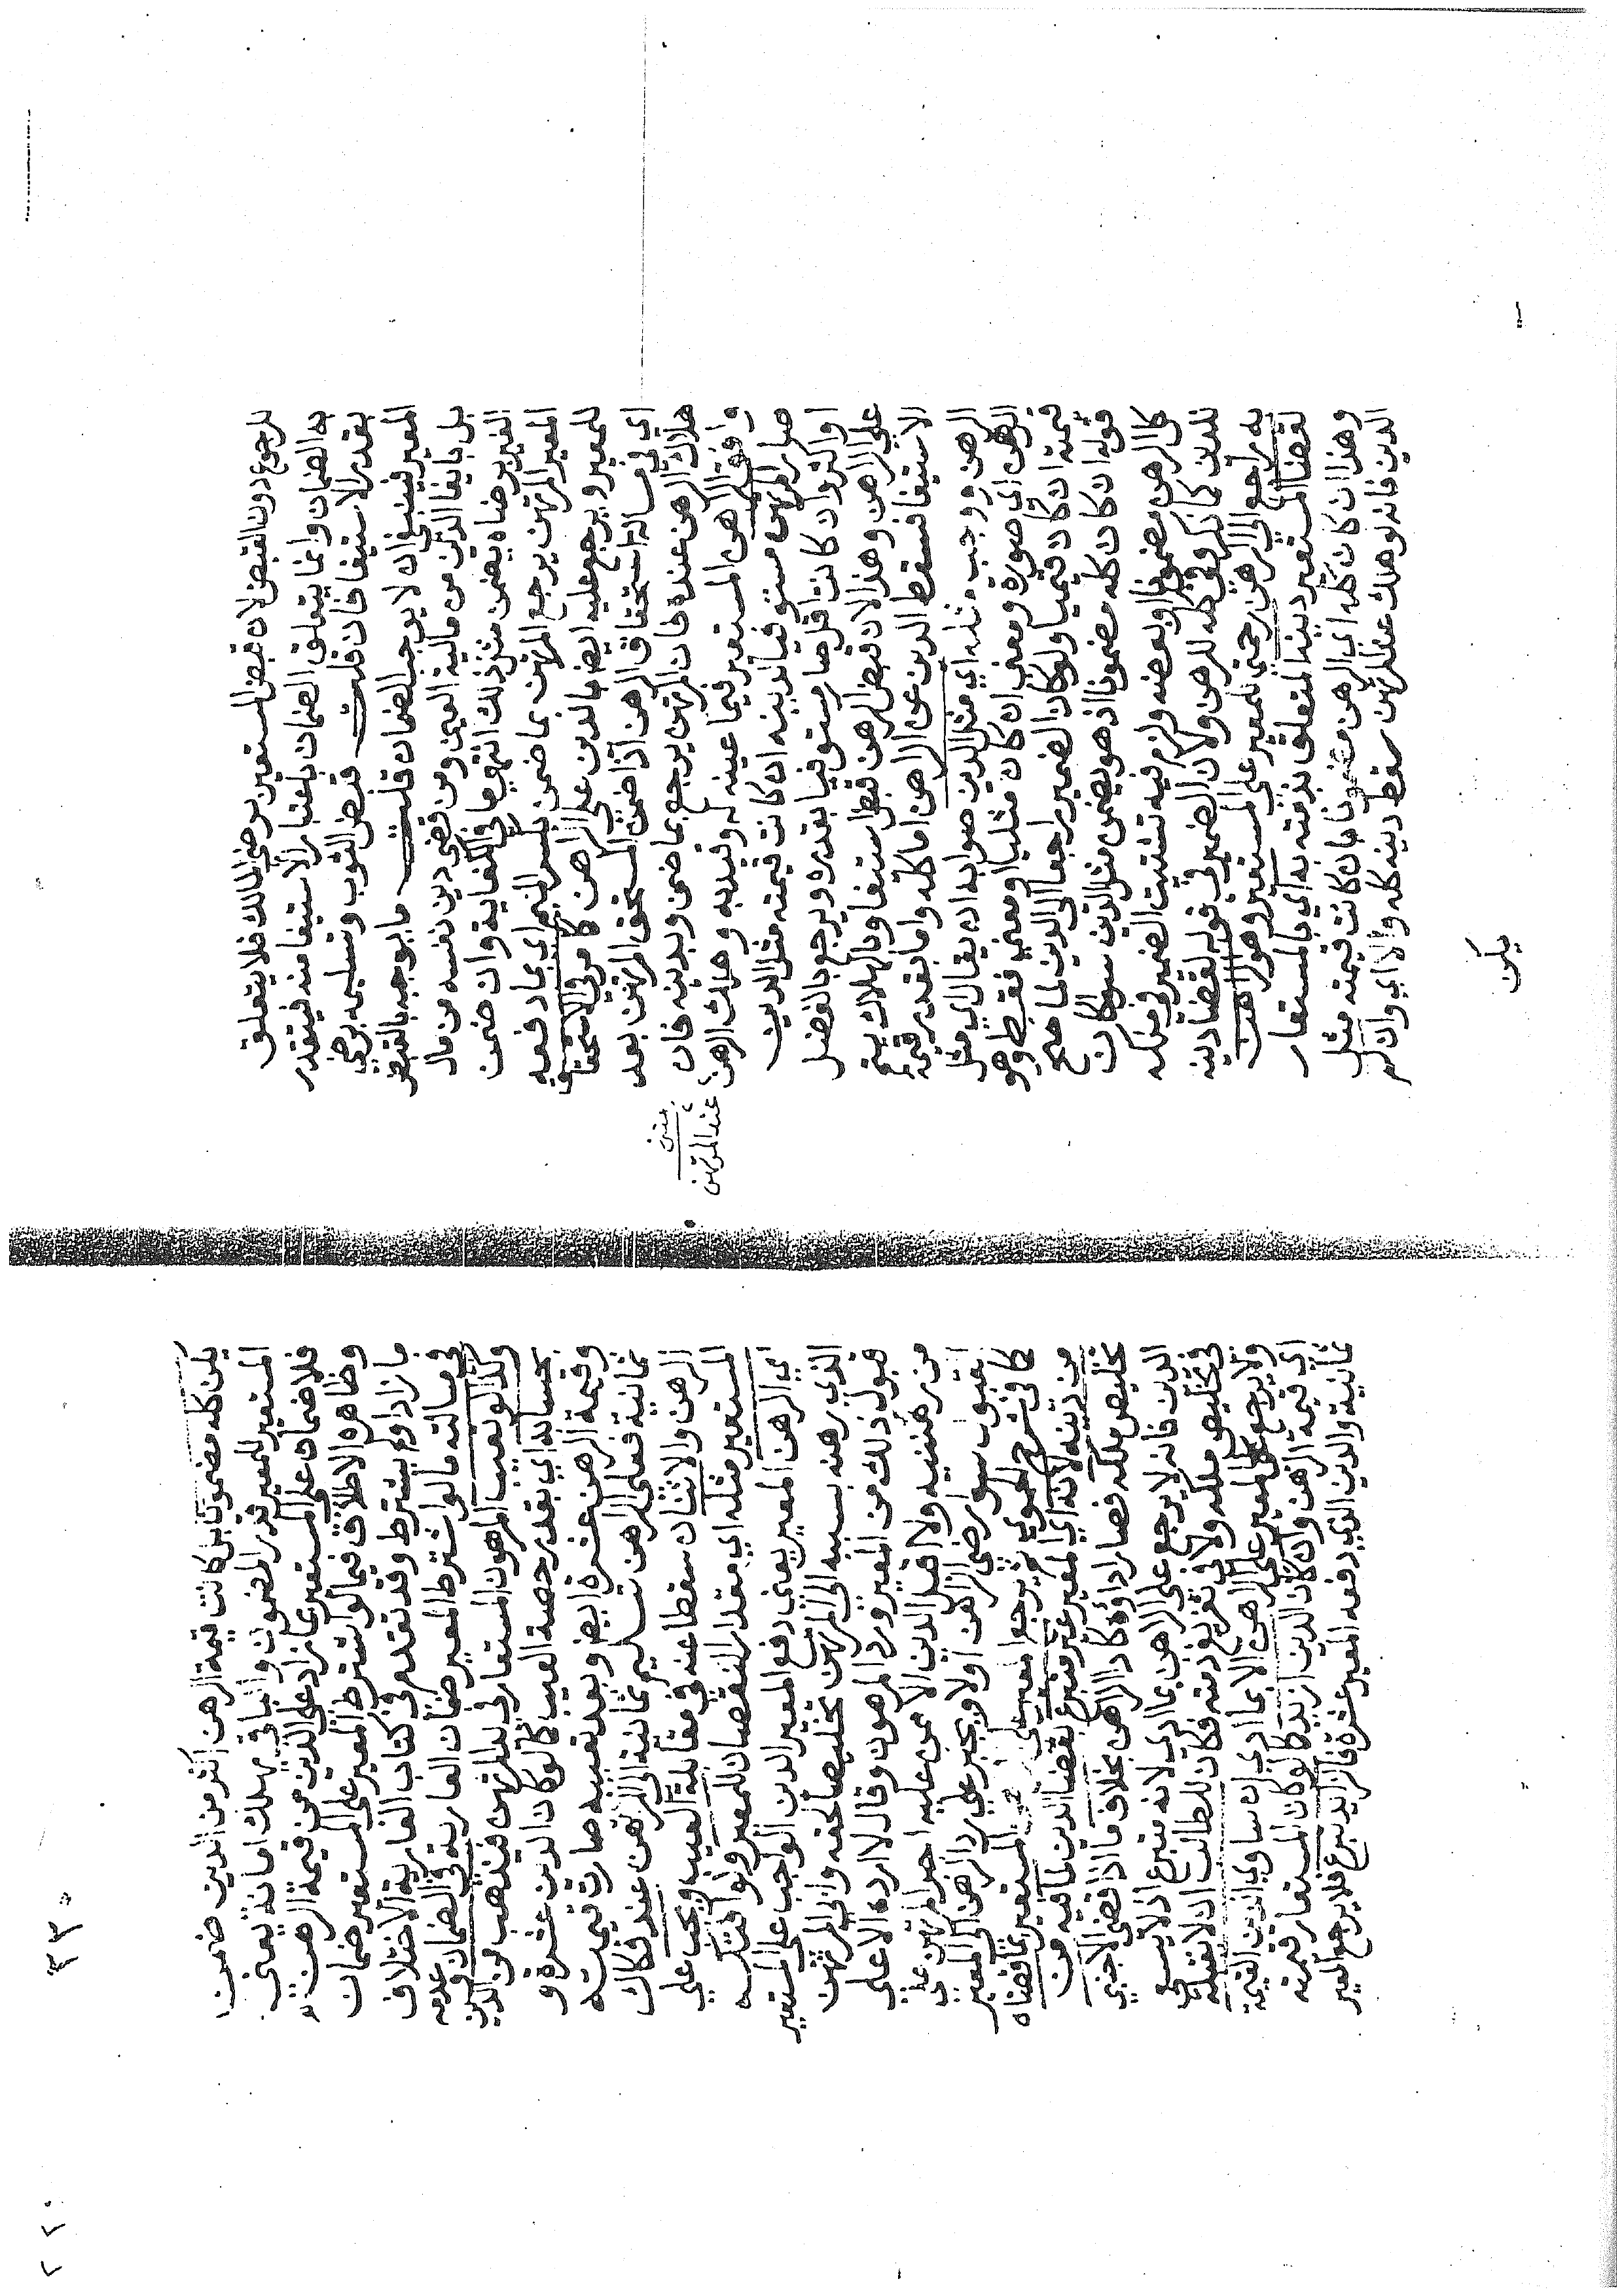 للرجوع دون القبض لان قبض المستعير برضى المالك فلا يتعلق
به الضمان وانما يتعلق الضمان باعتبار الاستيفا منه فيتقدر
بقدر الاستيفا فان قلت قبض الثوب وتسلمه برضى
المعير فينبغي ان لا يوجب الضمان قلت ما يوجبه بالقبض
بل بايفا الدين من مالية العين ومن قضى دين نفسه من مال
الغير برضاه يضمن مثل ذلك انتهى ما في الكفاية وان ضمن
المعير المرتهن يرجع المرتهن بما ضمن بكسر الميم اي بما دفعه
للمعير ويرجع عليه ايضا بالدين على الراهن كما مر في الاستحقاق
اي في مسالة استحقاق الرهن اذا ضمن المستحق المرتهن بعد
هلاك الرهن عنده فان المرتهن يرجع بما ضمن وبدينه فان
وافق الراهن المستعير فيما عينه له وقيد به وهلك الرهن
عند المرتهن
صار المرتهن مستوفيا لدينه ان كانت قيمته مثل الدين
او اكثر وان كانت اقل صار مستوفيا بقدره ويرجع بالفضل
على الراهن وهذا لان قبض الرهن قبض استيفا وبالهلاك يتم
الاستيفا فسقط الدين عن الراهن اما كله واما بقدر قيمة
الرهن ووجب مثله اي مثل الدين صوابه ان يقال اي مثل
الرهن اي صورة ومعنى ان كان مثليا او معنى فقط وهو
قيمته ان كان قيميا ولو كان الضمير راجعا الى الدين لما صح
قوله ان كان كله مضمونا اذ هو يضمن مثل الدين سوا كان
كل الرهن مضمونا او بعضه ولزم فيه تشتيت الضمير في ملكه
للدين كما ذكر وفي كله للرهن ولان الضمير في قوله لقضا دينه
به راجع الى الرهن حتى للمعير على المستعير وهو الراهن
لقضا المستعير دينا لمتعلق بذمته به اي بالمستعار
وهذا ان كان كله اي الرهن مضمونا بان كانت قيمته مثل
الدين فانه لو هلك عند المرتهن سقط دينه كله والا اي وان لم
يكن
يكن كله مضمونا بل كانت قيمة الرهن اكثر من الدين ضمن
المستعير للمعير قدر المضمون والباقي يهلك امانة يعني
فلا ضمان على المستعير بما زاد على الدين من قيمة الرهن
وظاهره الاطلاق فيما لو اشترط المعير على المستعير ضمان
ما زاد او لم يشترط وقد تقدم في كتاب العارية الاختلاف
في مسالة ما لو اشترط المعير ضمان العارية في الضمان وعدمه
وكذا لو تعيب المرهون المستعار في يد المرتهن فيذهب من الدين
بحسابه اي بقدر حصة العيب كما لو كان الدين عشرة و
وقيمة الرهن عشرة ايض وبعد تعيبه صارت قيمته
ثمانية فعلى الراهن تسليم ثمانية الى المرتهن عند فكاك
الرهن والاثنان سقطا عنه في مقابلة العيب ويجب على
المستعير مثله اي مقدار النقصان للمعير ولو افتكه
اي الرهن المعير يعني دفع المعير الدين الواجب على المستعير
الذي رهنه بسببه الى المرتهن تخليصا لحقه وابى المرتهن
قبول ذلك من المعير ورد المرهون وقال لا ارده الا على
من رهننيه ولا اقبل الدين الا ممن عليه اجبر المرتهن على
القبول سوا رضى الراهن او لا ويجبر على رد الرهن الى المعير
كما في شرح الحموي ثم يرجع المعير على المستعير بما قضاه
من دينه لانه اي المعير غير متبرع بقضا الدين لما فيه من
تخليص ملكه فصار اداؤه كاداء الراهن بخلاف ما اذا قضى الاجنبي
الدين فانه لا يرجع على الراهن بما ادى لانه متبرع اذ لا يسعى
في تخليص ملكه ولا في تفريغ ذمته فكان للطالب ان لا يقبله
ولا يرجع المعير على الراهن الا بما ادى ان ساوى الدين القيمة
اي قيمة الرهن وان كان الدين ازيد كما لو كان المستعار قيمته
ثمانية والدين الذي دفعه المعير عشرة فالزايد تبرع فلا يرجع المعير